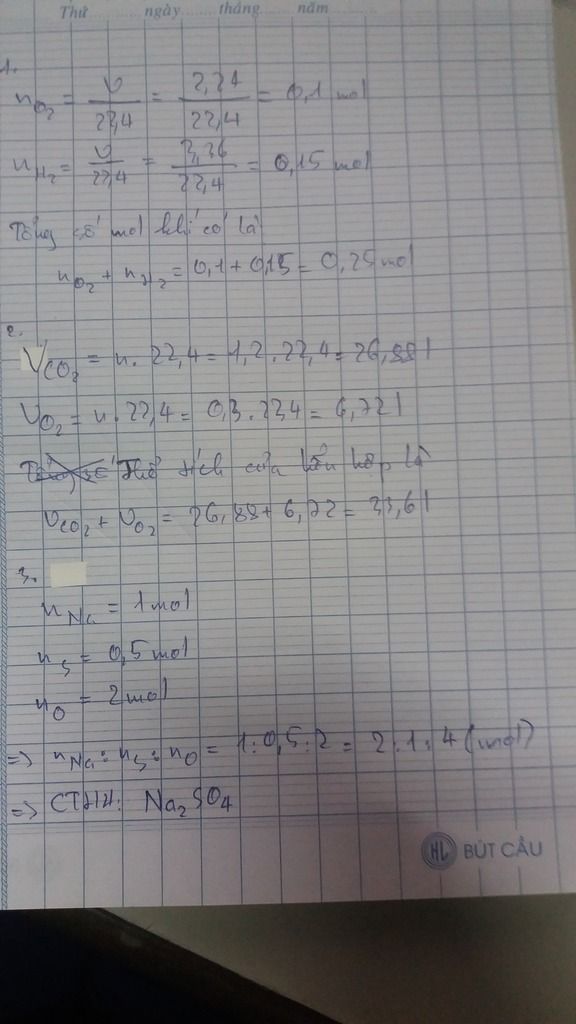 Thứ ........ ngày ........ tháng ........ năm ........
1.
n O₂ = V / 22,4 = 2,24 / 22,4 = 0,1 mol
n H₂ = V / 22,4 = 3,36 / 22,4 = 0,15 mol
Tổng số mol khí có là
n O₂ + n H₂ = 0,1 + 0,15 = 0,25 mol
2.
V CO₂ = n . 22,4 = 1,2 . 22,4 = 26,88 l
V O₂ = n . 22,4 = 0,3 . 22,4 = 6,72 l
Thể tích của hỗn hợp là
V CO₂ + V O₂ = 26,88 + 6,72 = 33,6 l
3.
n Na = 1 mol
n S = 0,5 mol
n O = 2 mol
=> n Na : n S : n O = 1 : 0,5 : 2 = 2 : 1 : 4 (mol)
=> CTHH: Na₂SO₄
HL BÚT CÂU